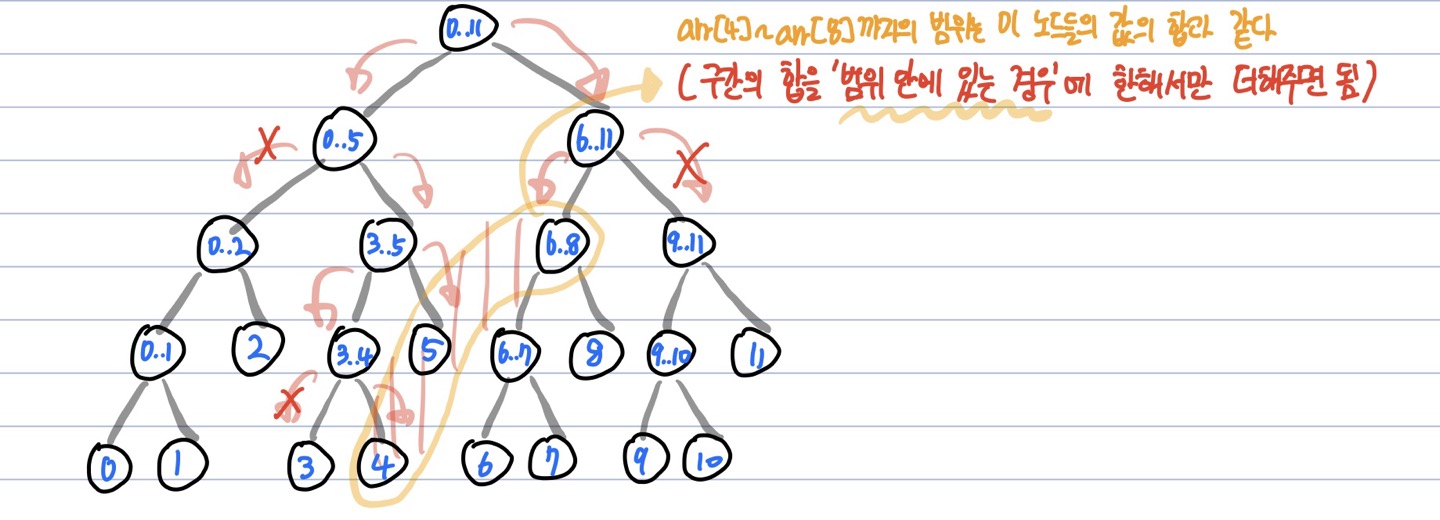 arr[4]~arr[8]까지의 범위는 이 노드들의 값의 합과 같다
(구간의 합을 '범위 안에 있는 경우'에 한해서만 더해주면 됨)
0..11
0..5
6..11
0..2
3..5
6..8
9..11
0..1
2
3..4
5
6..7
8
9..10
11
0
1
3
4
6
7
9
10